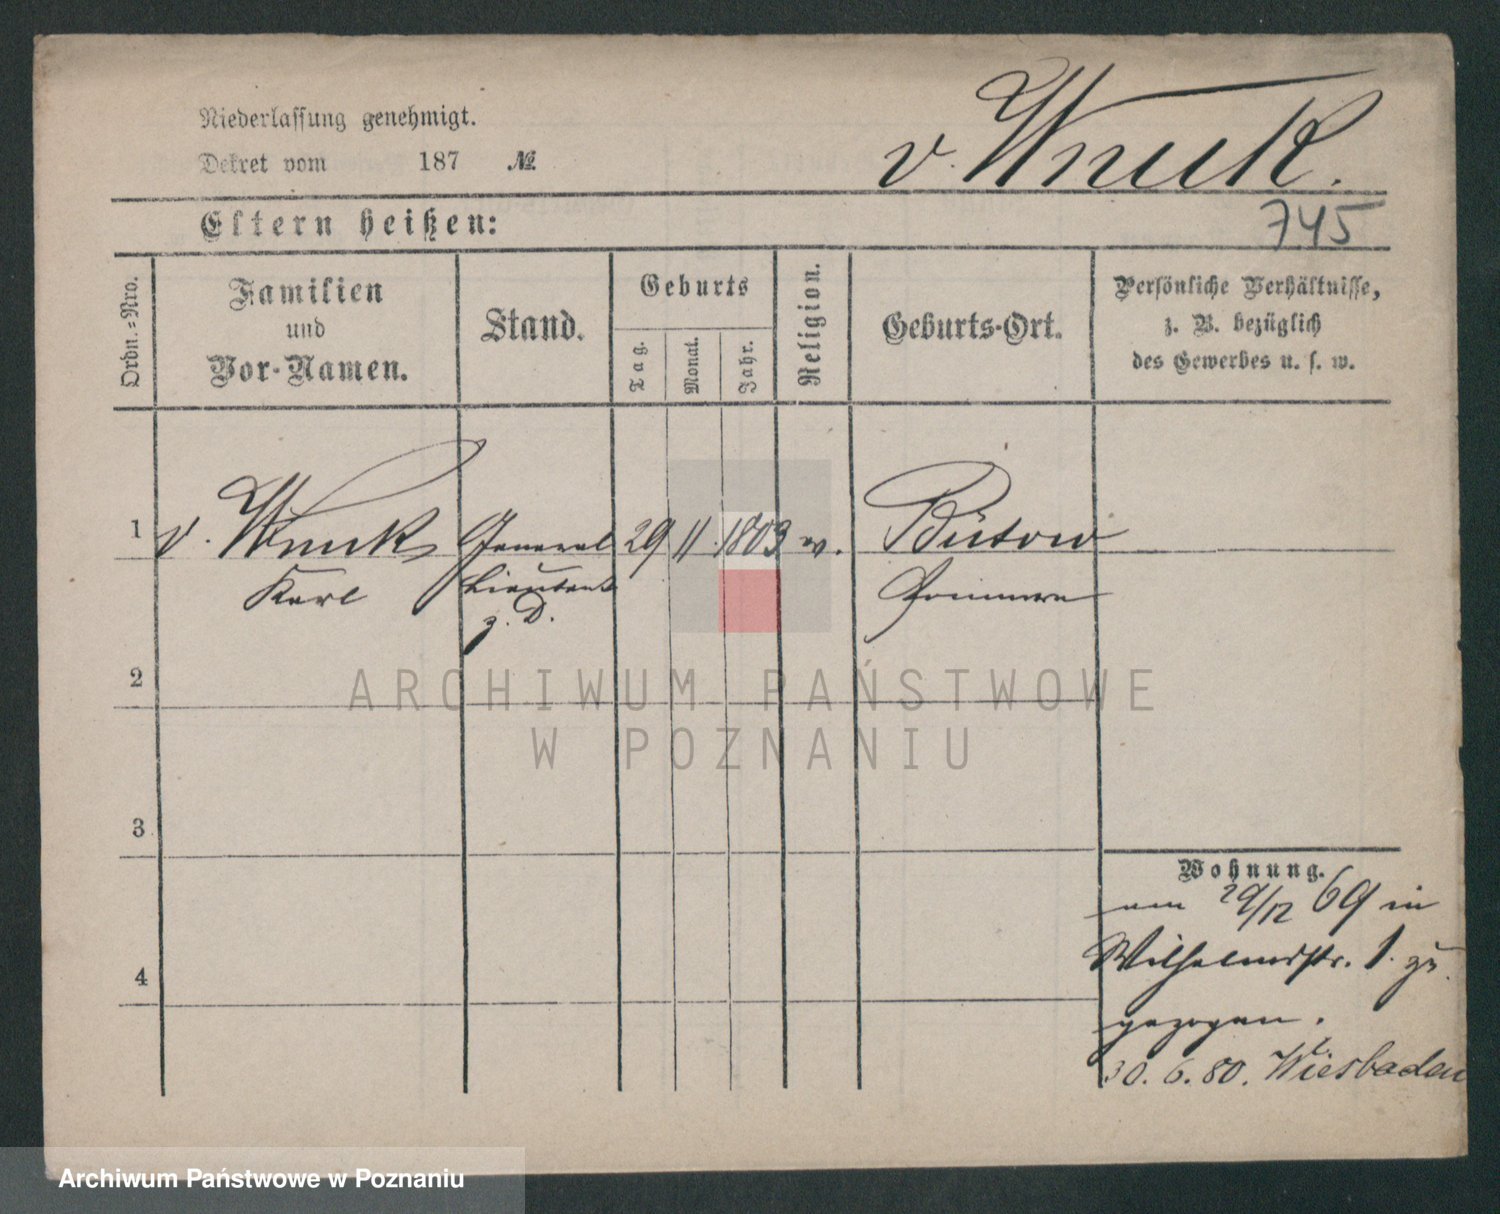 Niederlassung genehmigt.
v. Wnuck.
Dekret vom 187 №
Eltern heißen:
745
Ordn.=Nro.
Familien
und
Vor-Namen.
Stand.
Geburts
Tag.
Monat.
Jahr.
Religion.
Geburts-Ort.
Persönliche Verhältnisse,
z. B. bezüglich
des Gewerbes u. s. w.
1 v. Wnuck General 29 11. 1803 ev. Bütow
Karl Lieutenant Pommern
z. D.
2
ARCHIWUM PAŃSTWOWE
W POZNANIU
3
4
Wohnung.
am 29/12 69 in
Wilhelmstr. 1. zu
gezogen.
30. 6. 80. Wiesbaden
Archiwum Państwowe w Poznaniu